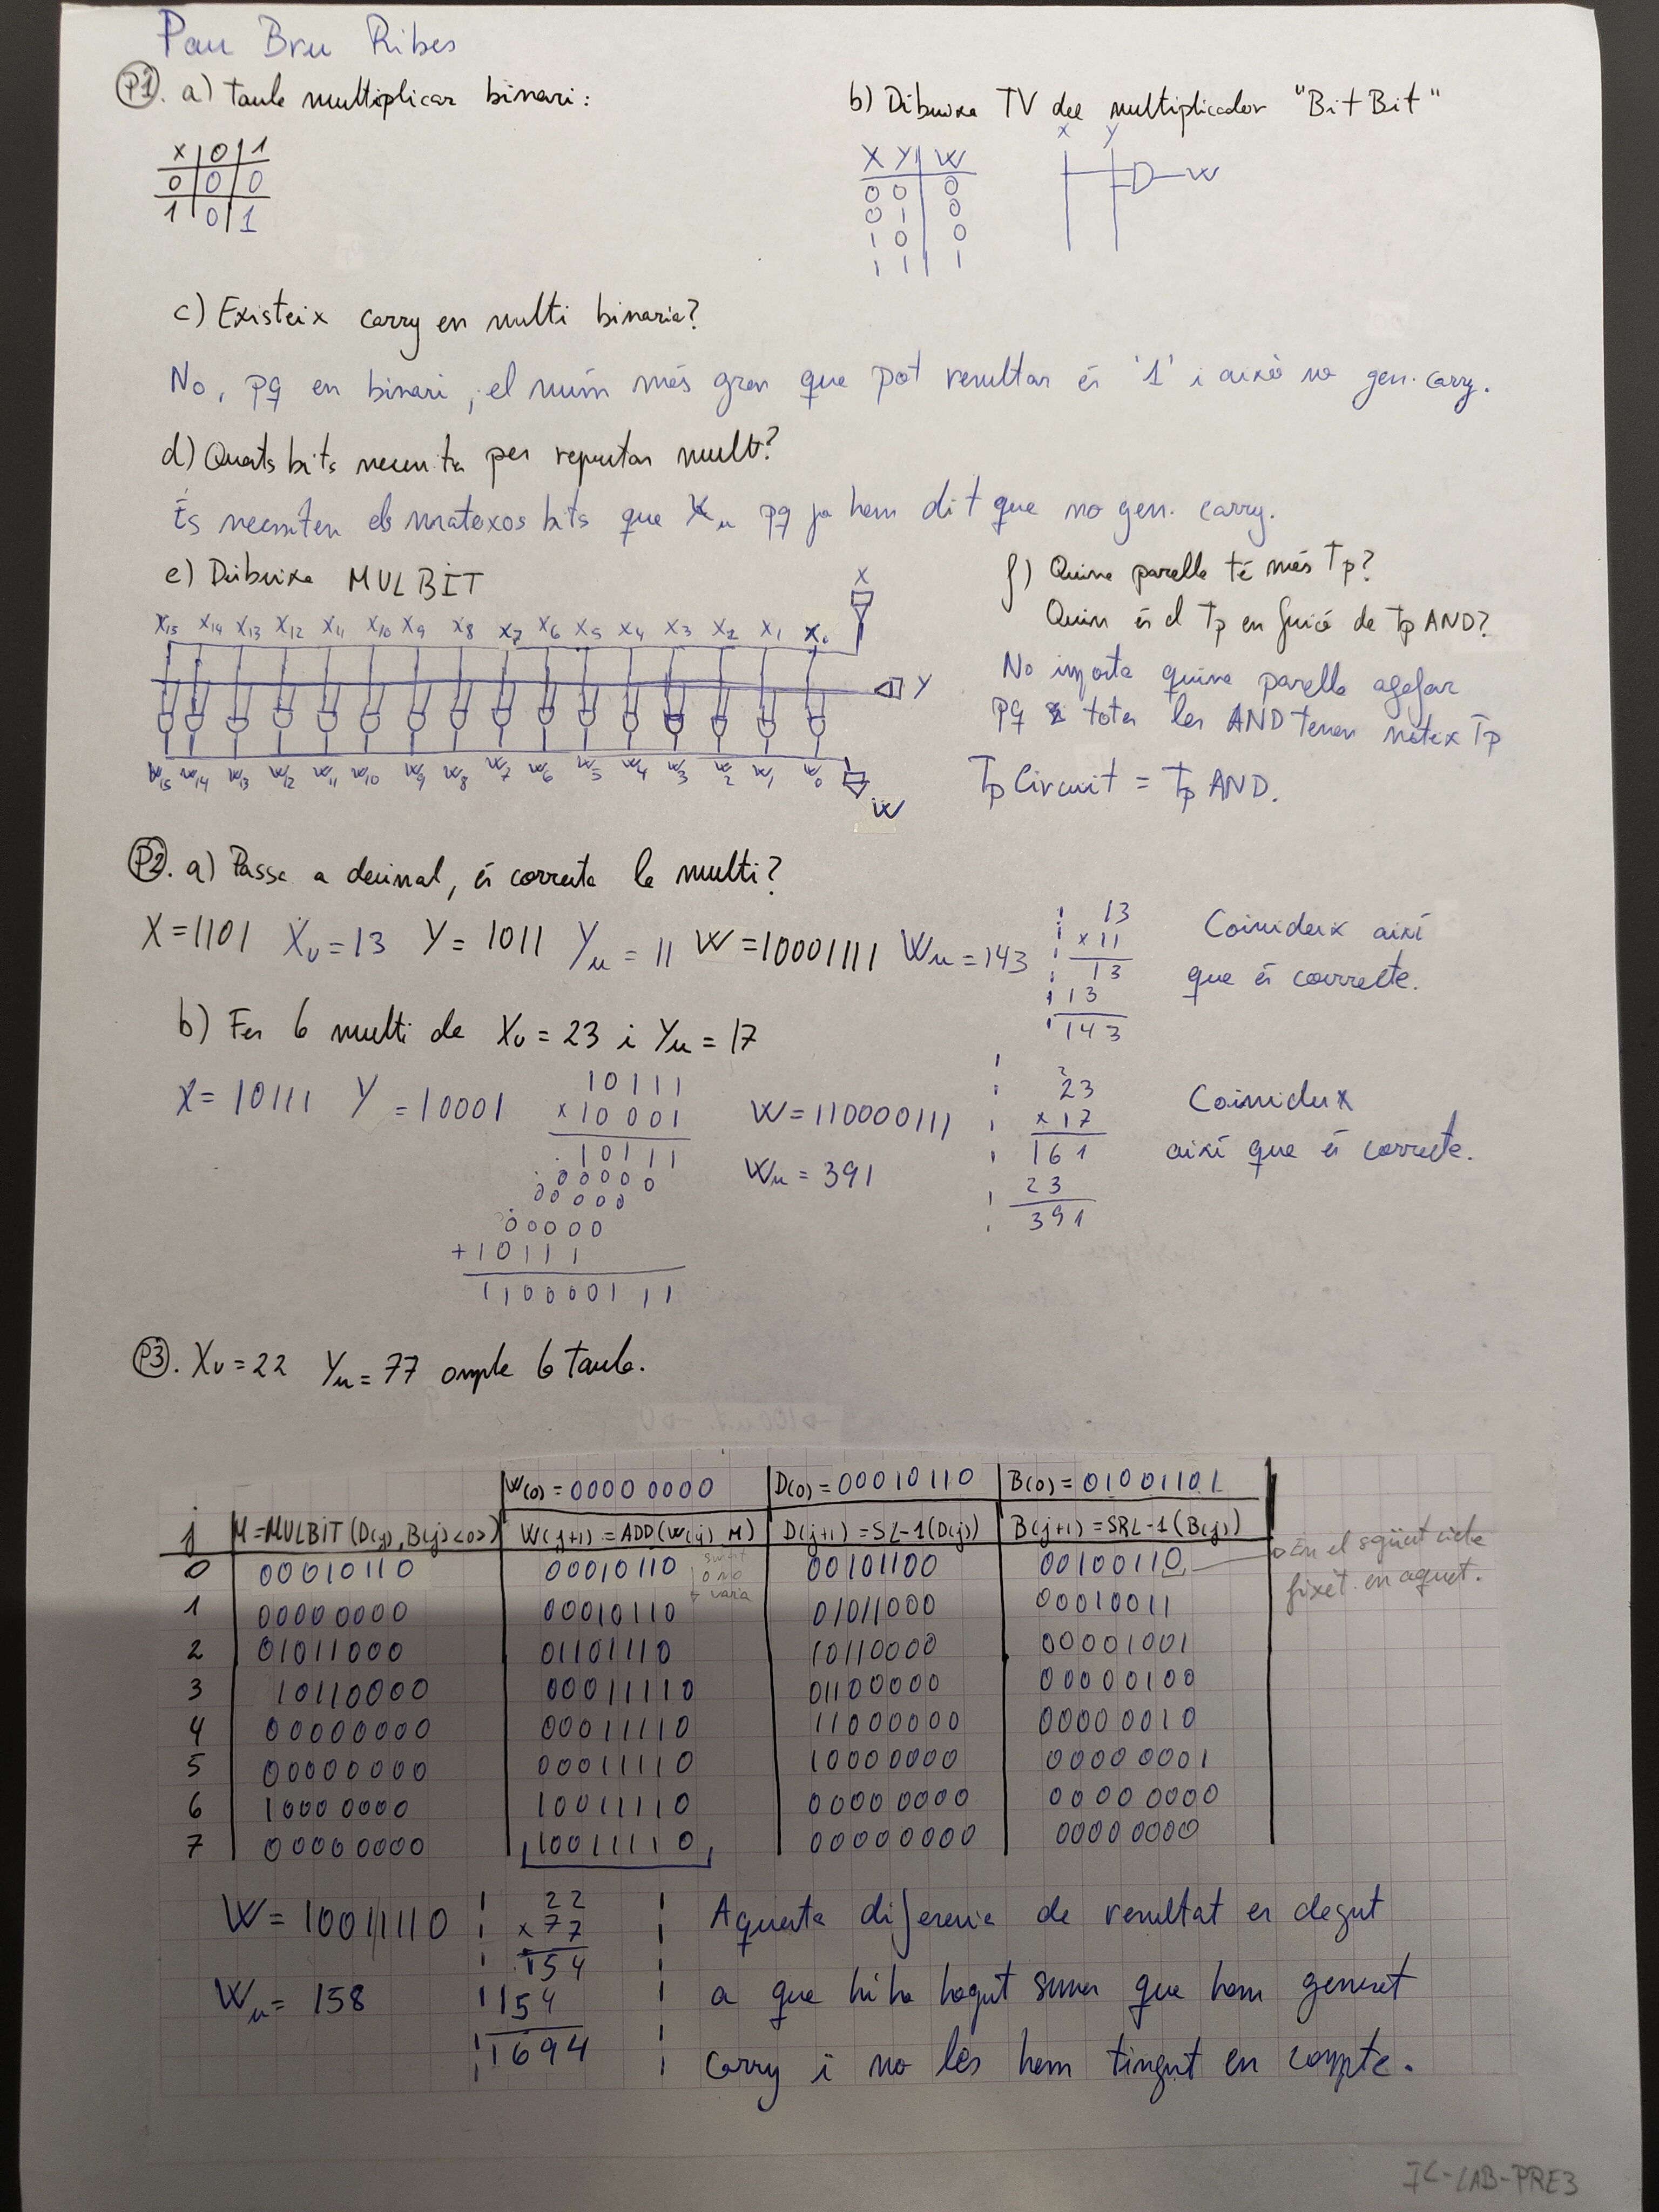 Pau Bru Ribes
P1. a) taula multiplicar binari:
X 0 1
0 0 0
1 0 1
b) Dibuixa TV del multiplicador "Bit Bit"
X Y W
0 0 0
0 1 0
1 0 0
1 1 1
X Y
W
c) Existeix carry en multi binaria?
No, pq en binari, el núm més gran que pot resultar és '1' i això no gen. carry.
d) Quants bits necessita per repr multi?
Es necessiten els mateixos bits que Xu pq ja hem dit que no gen. carry.
e) Dibuixa MULBIT
X
X15 X14 X13 X12 X11 X10 X9 X8 X7 X6 X5 X4 X3 X2 X1 X0
Y
W15 W14 W13 W12 W11 W10 W9 W8 W7 W6 W5 W4 W3 W2 W1 W0
W
f) Quina parella té més Tp?
Quin és el Tp en funció de Tp AND?
No importa quina parella agafar
pq totes les AND tenen mateix Tp
Tp Circuit = Tp AND.
P2. a) Passa a decimal, és correcta la multi?
X=1101 Xu=13 Y=1011 Yu=11 W=10001111 Wu=143
13
x11
13
13
143
Coincideix així
que és correcte.
b) Fer la multi de Xu=23 i Yu=17
X=10111 Y=10001
10111
x10001
10111
00000
00000
00000
+10111
110000111
W=110000111
Wu=391
2
23
x17
161
23
391
Coincideix
així que és correcte.
P3. Xu=22 Yu=77 omple la taula.
W(0)=0000 0000 D(0)=00010110 B(0)=01001101
j M=MULBIT(D(j),B(j)<0>) W(j+1)=ADD(W(j), M) D(j+1)=SL-1(D(j)) B(j+1)=SRL-1(B(j))
0 00010110 00010110 00101100 00100110
0 no
varia
En el següent cicle
fixet en aquet.
1 00000000 00010110 01011000 00010011
2 01011000 01101110 10110000 00001001
3 10110000 00011110 01100000 00000100
4 00000000 00011110 11000000 00000010
5 00000000 00011110 10000000 0000 0001
6 1000 0000 10011110 0000 0000 0000 0000
7 00000000 10011110 00000000 0000 0000
W=10011110
Wu=158
22
x77
154
154
1694
Aquesta diferencia de resultat es degut
a que hi ha hagut sumes que han generat
carry i no les hem tingut en compte.
IC-LAB-PRE3